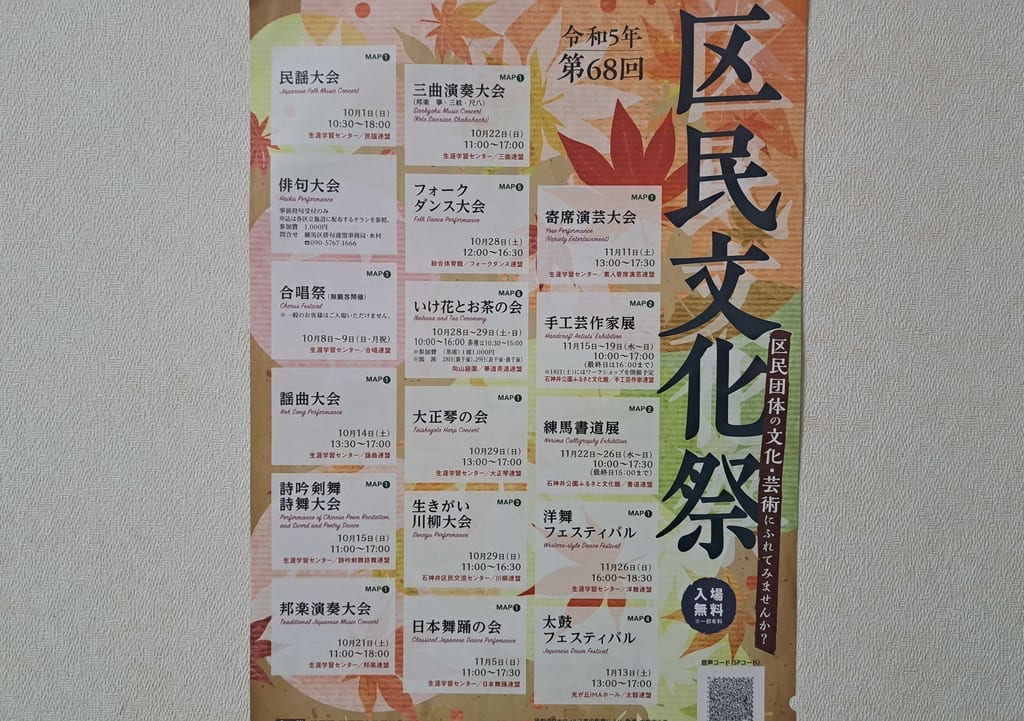 区民文化祭
令和5年
第68回
区民団体の文化・芸術にふれてみませんか?
入場
無料
※一部有料
音声コード(SPコード)
MAP1
民謡大会
Japanese Folk Music Concert
10月1日(日)
10:30〜18:00
生涯学習センター/民謡連盟
俳句大会
Haiku Performance
事前投句受付のみ
申込は各区立施設に配布するチラシを参照。
参加費 1,000円
問合せ 練馬区俳句連盟事務局・水村
☎090-5767-1666
MAP1
合唱祭(無観客開催)
Chorus Festival
※一般のお客様はご入場いただけません。
10月8日〜9日(日・月祝)
生涯学習センター/合唱連盟
MAP1
謡曲大会
Noh Song Performance
10月14日(土)
13:30〜17:00
生涯学習センター/謡曲連盟
MAP1
詩吟剣舞
詩舞大会
Performance of Chinese Poem Recitation,
and Sword and Poetry Dance
10月15日(日)
11:00〜17:00
生涯学習センター/詩吟剣舞詩舞連盟
MAP1
邦楽演奏大会
Traditional Japanese Music Concert
10月21日(土)
11:00〜18:00
生涯学習センター/邦楽連盟
MAP1
三曲演奏大会
(邦楽 箏・三絃・尺八)
Sankyoku Music Concert
(Koto Sanxian Shakuhachi)
10月22日(日)
11:00〜17:00
生涯学習センター/三曲連盟
MAP5
フォーク
ダンス大会
Folk Dance Performance
10月28日(土)
12:00〜16:30
総合体育館/フォークダンス連盟
MAP6
いけ花とお茶の会
Ikebana and Tea Ceremony
10月28日〜29日(土・日)
10:00〜16:00 茶席は10:30〜15:00
※参加費 (茶席)1席1,000円
※流 派 28日(裏千家)、29日(表千家・裏千家)
向山庭園/華道茶道連盟
MAP1
大正琴の会
Taishogoto Harp Concert
10月29日(日)
13:00〜17:00
生涯学習センター/大正琴連盟
MAP3
生きがい
川柳大会
Senryu Performance
10月29日(日)
11:00〜16:30
石神井区民交流センター/川柳連盟
MAP1
日本舞踊の会
Classical Japanese Dance Perfomance
11月5日(日)
11:00〜17:30
生涯学習センター/日本舞踊連盟
MAP1
寄席演芸大会
Yose Performance
(Variety Entertainment)
11月11日(土)
13:00〜17:30
生涯学習センター/素人寄席演芸連盟
MAP2
手工芸作家展
Handcraft Artists Exhibition
11月15日〜19日(水〜日)
10:00〜17:00
(最終日は16:00まで)
※18日(土)にはワークショップを開催予定
石神井公園ふるさと文化館/手工芸作家連盟
MAP2
練馬書道展
Nerima Calligraphy Exhibition
11月22日〜26日(水〜日)
10:00〜17:30
(最終日15:00まで)
石神井公園ふるさと文化館/書道連盟
MAP1
洋舞
フェスティバル
Western-style Dance Festival
11月26日(日)
16:00〜18:30
生涯学習センター/洋舞連盟
MAP4
太鼓
フェスティバル
Japanese Drum Festival
1月13日(土)
13:00〜17:00
光が丘IMAホール/太鼓連盟